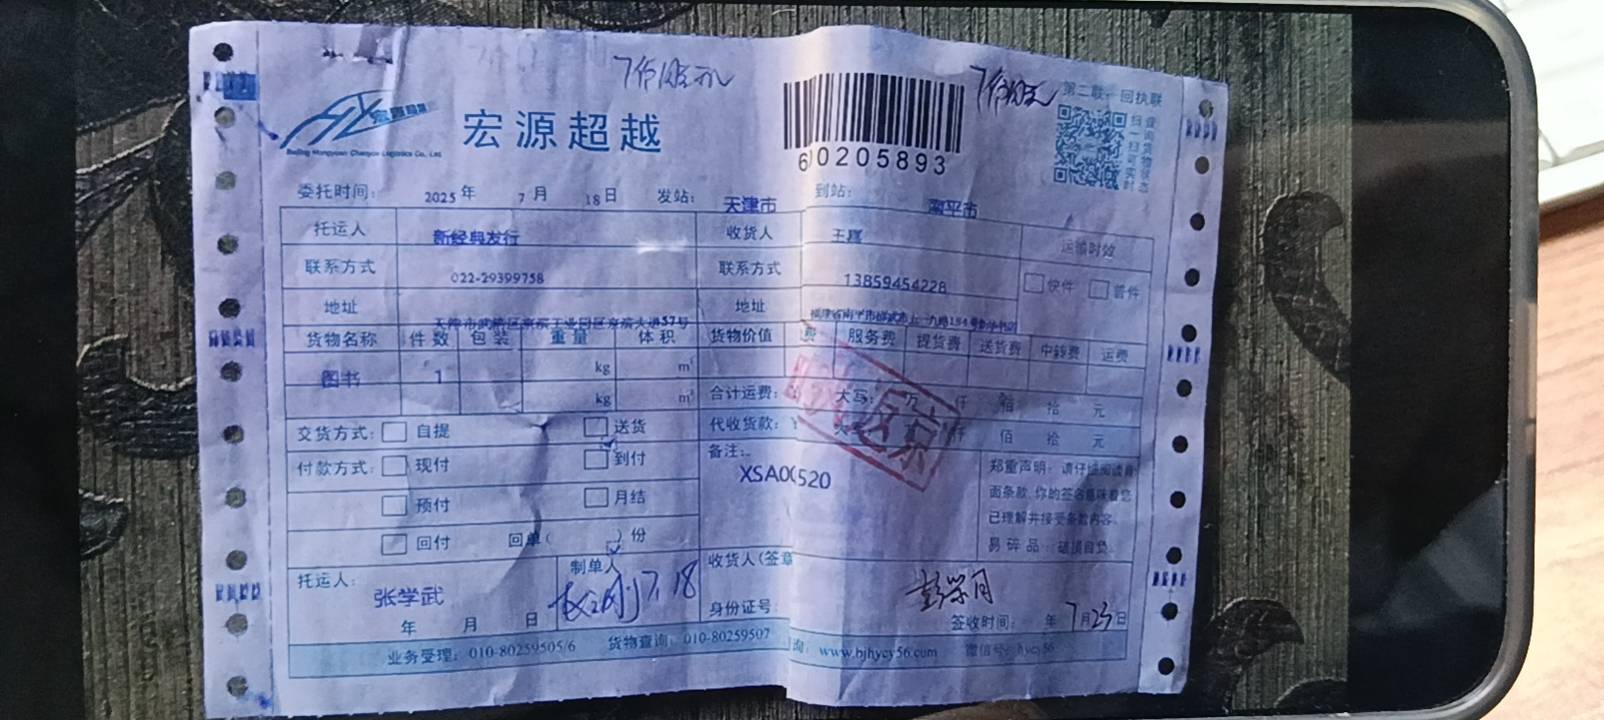 宏源超越
Beijing Hongyuan Chaoyue Logistics Co., Ltd.
60205893
第二联：回执联
扫一扫可实时
查询货物状态
委托时间： 2025 年 7 月 18 日 发站： 天津市 到站： 南平市
托运人 新经典发行 收货人 王 运输时效
联系方式 022-29399758 联系方式 13859454228 快件 普件
地址 天津市武清区京滨工业园区京滨大道57号 地址
货物名称 件数 包装 重量 体积 货物价值 费 服务费 提货费 送货费 中转费 运费
图书 1 kg m³
kg m³ 合计运费： 大写： 万 仟 佰 拾 元
交货方式： 自提 送货 代收货款： 仟 佰 拾 元
付款方式： 现付 到付 备注：
XSA00520
预付 月结
回付 回单（ ）份
郑重声明：请仔细阅读背
面条款，你的签名意味着您
已理解并接受条款内容。
易碎品：破损自负。
托运人： 张学武 制单人 7.18 收货人(签章
年 月 日 身份证号： 签收时间： 年 7月23日
业务受理：010-80259505/6 货物查询：010-80259507 询：www.bjhycy56.com 微信号：hycy56